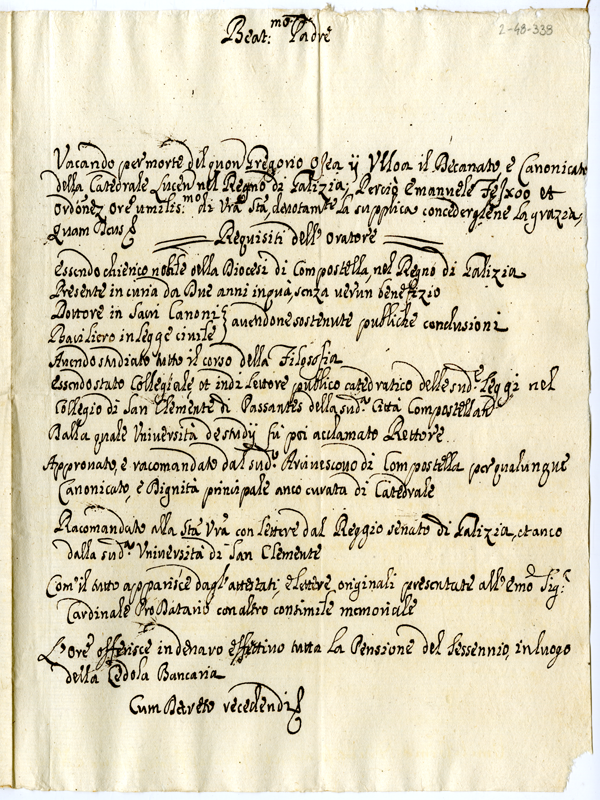 Beat:mo Padre
2-48-338
Vacando per morte del quon Gregorio Osea y Ulloa il Decanato, e Canonicato
della Catedrale Lucen nel Regno di Galizia; Perciò Emanuele et
Ordónez Ore umilis:mo di Vra Stà, devotamte la supplica concedergliene la grazia,
Quam Deus
Requisiti dell' Oratore
Essendo chierico nobile della Diocesi di Compostella, nel Regno di Galizia
Presente in curia da Due anni in quà, senza verun benefizio
Dottore in Sacri Canoni
Baviliero in legge civile } avendone sostenute publiche conclusioni
Avendo studiato tutto il corso della Filosofia
Essendo stato Collegiale et indi Lettore publico catedratico delle sud:e Leggi nel
Collegio di San Clemente di Passantes della sud:a Città Compostellana
Dalla quale Università de studij fù poi acclamato Rettore
Approvato, e racomandato dal sud:o Arcivescovo di Compostella per qualunque
Canonicato, e Dignità principale anco curata di Catedrale
Racomandato alla Stà Vrà con lettere dal Reggio Senato di Galizia, et anco
dalla sud:a Università di San Clemente
Com' il tutto apparisce dagl' attestati, e lettere originali presentate all' Emo Sig:r
Cardinale Pro Datario con altro consimile memoriale
L' Ore offerisce in denaro effettivo tutta la Pensione del Sessennio, in luogo
della Cedola Bancaria
Cum Decreto recedendi